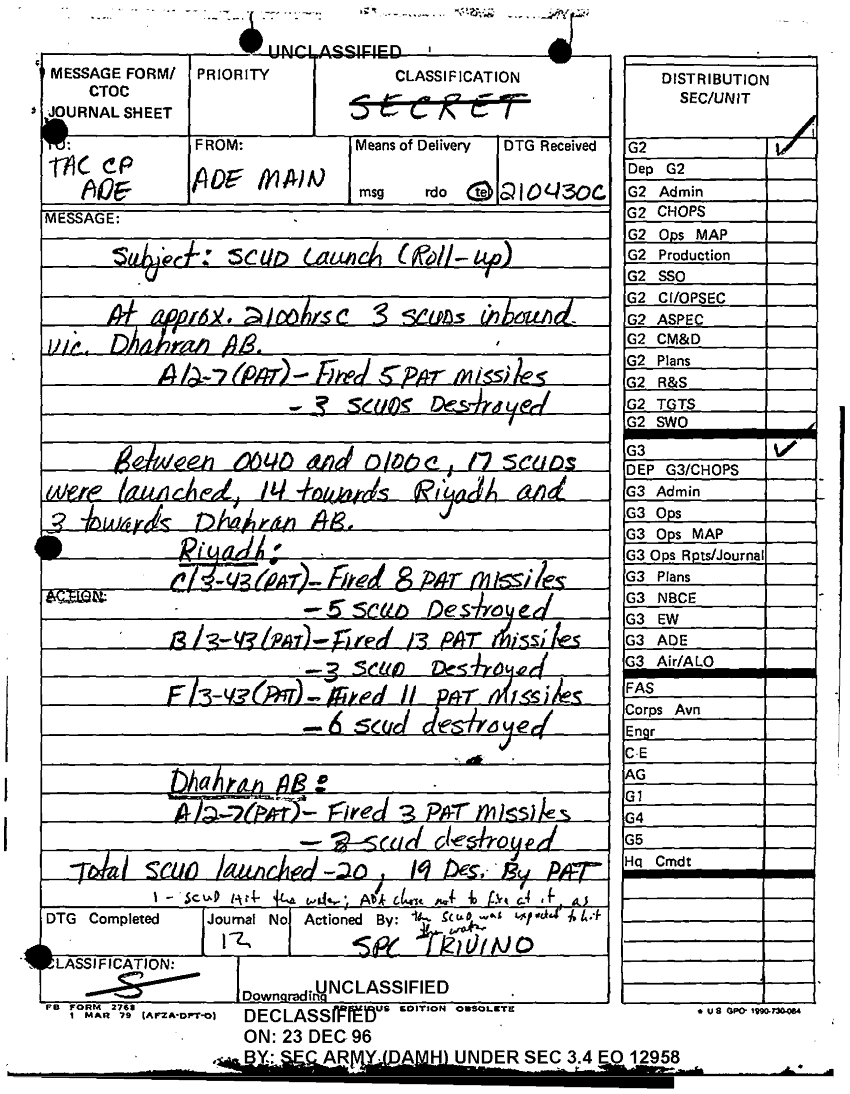 UNCLASSIFIED
MESSAGE FORM/
CTOC
JOURNAL SHEET
PRIORITY
CLASSIFICATION
SECRET
TO:
TAC CP
ADE
FROM:
ADE MAIN
Means of Delivery
msg rdo tel
DTG Received
210430C
MESSAGE:
Subject: SCUD Launch (Roll-up)
At approx. 2100hrsC 3 SCUDs inbound
vic. Dhahran AB.
A/2-7(PAT)- Fired 5 PAT missiles
- 3 SCUDS Destroyed
Between 0040 and 0100C, 17 SCUDS
were launched, 14 towards Riyadh and
3 towards Dhahran AB.
Riyadh:
C/3-43(PAT)- Fired 8 PAT missiles
ACTION:
- 5 SCUD Destroyed
B/3-43(PAT)- Fired 13 PAT missiles
- 3 SCUD Destroyed
F/3-43(PAT)- Fired 11 PAT missiles
- 6 scud destroyed
Dhahran AB:
A/2-7(PAT)- Fired 3 PAT missiles
- scud destroyed
Total SCUD launched-20, 19 Des. By PAT
1 - SCUD Hit the water; ADA chose not to fire at it, as
the SCUD was expected to hit
the water
DTG Completed
Journal No
12
Actioned By:
SPC TRIVINO
CLASSIFICATION:
S
Downgrading
UNCLASSIFIED
FB FORM 2768
1 MAR 79 (AFZA-DPT-O)
PREVIOUS EDITION OBSOLETE
DECLASSIFIED
ON: 23 DEC 96
BY: SEC ARMY (DAMH) UNDER SEC 3.4 EO 12958
DISTRIBUTION
SEC/UNIT
G2
Dep G2
G2 Admin
G2 CHOPS
G2 Ops MAP
G2 Production
G2 SSO
G2 CI/OPSEC
G2 ASPEC
G2 CM&D
G2 Plans
G2 R&S
G2 TGTS
G2 SWO
G3
DEP G3/CHOPS
G3 Admin
G3 Ops
G3 Ops MAP
G3 Ops Rpts/Journal
G3 Plans
G3 NBCE
G3 EW
G3 ADE
G3 Air/ALO
FAS
Corps Avn
Engr
C-E
AG
G1
G4
G5
Hq Cmdt
* US GPO: 1990-730-084